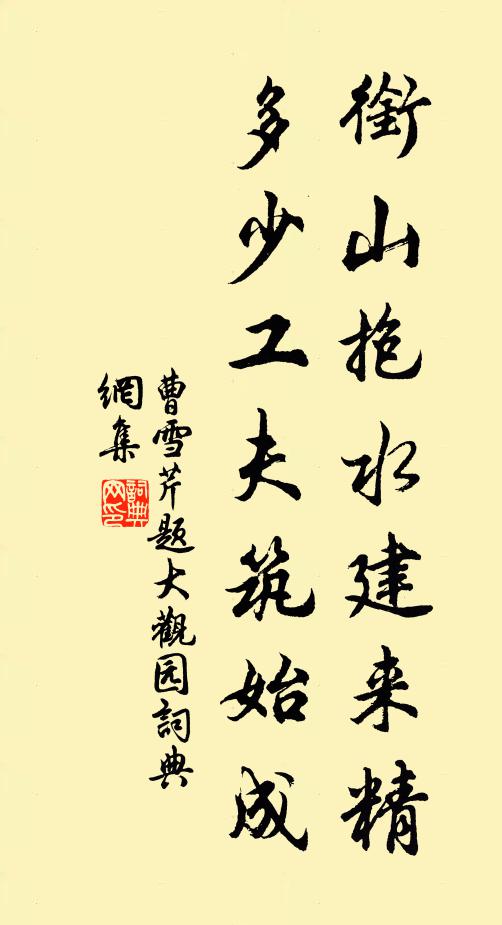 銜山抱水建来精
多少工夫筑始成
曹雪芹题大觀园詞典
網集
詞典
网印